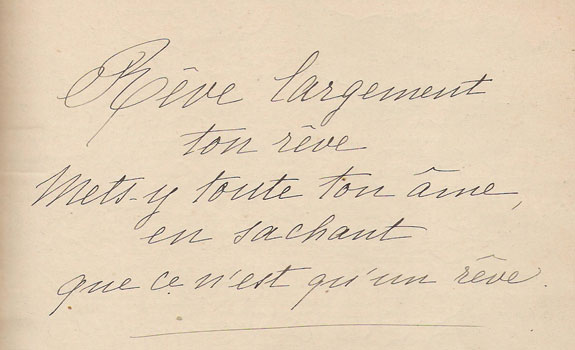 Rêve largement
ton rêve
Mets-y toute ton âme,
en sachant
que ce n'est qu'un rêve.